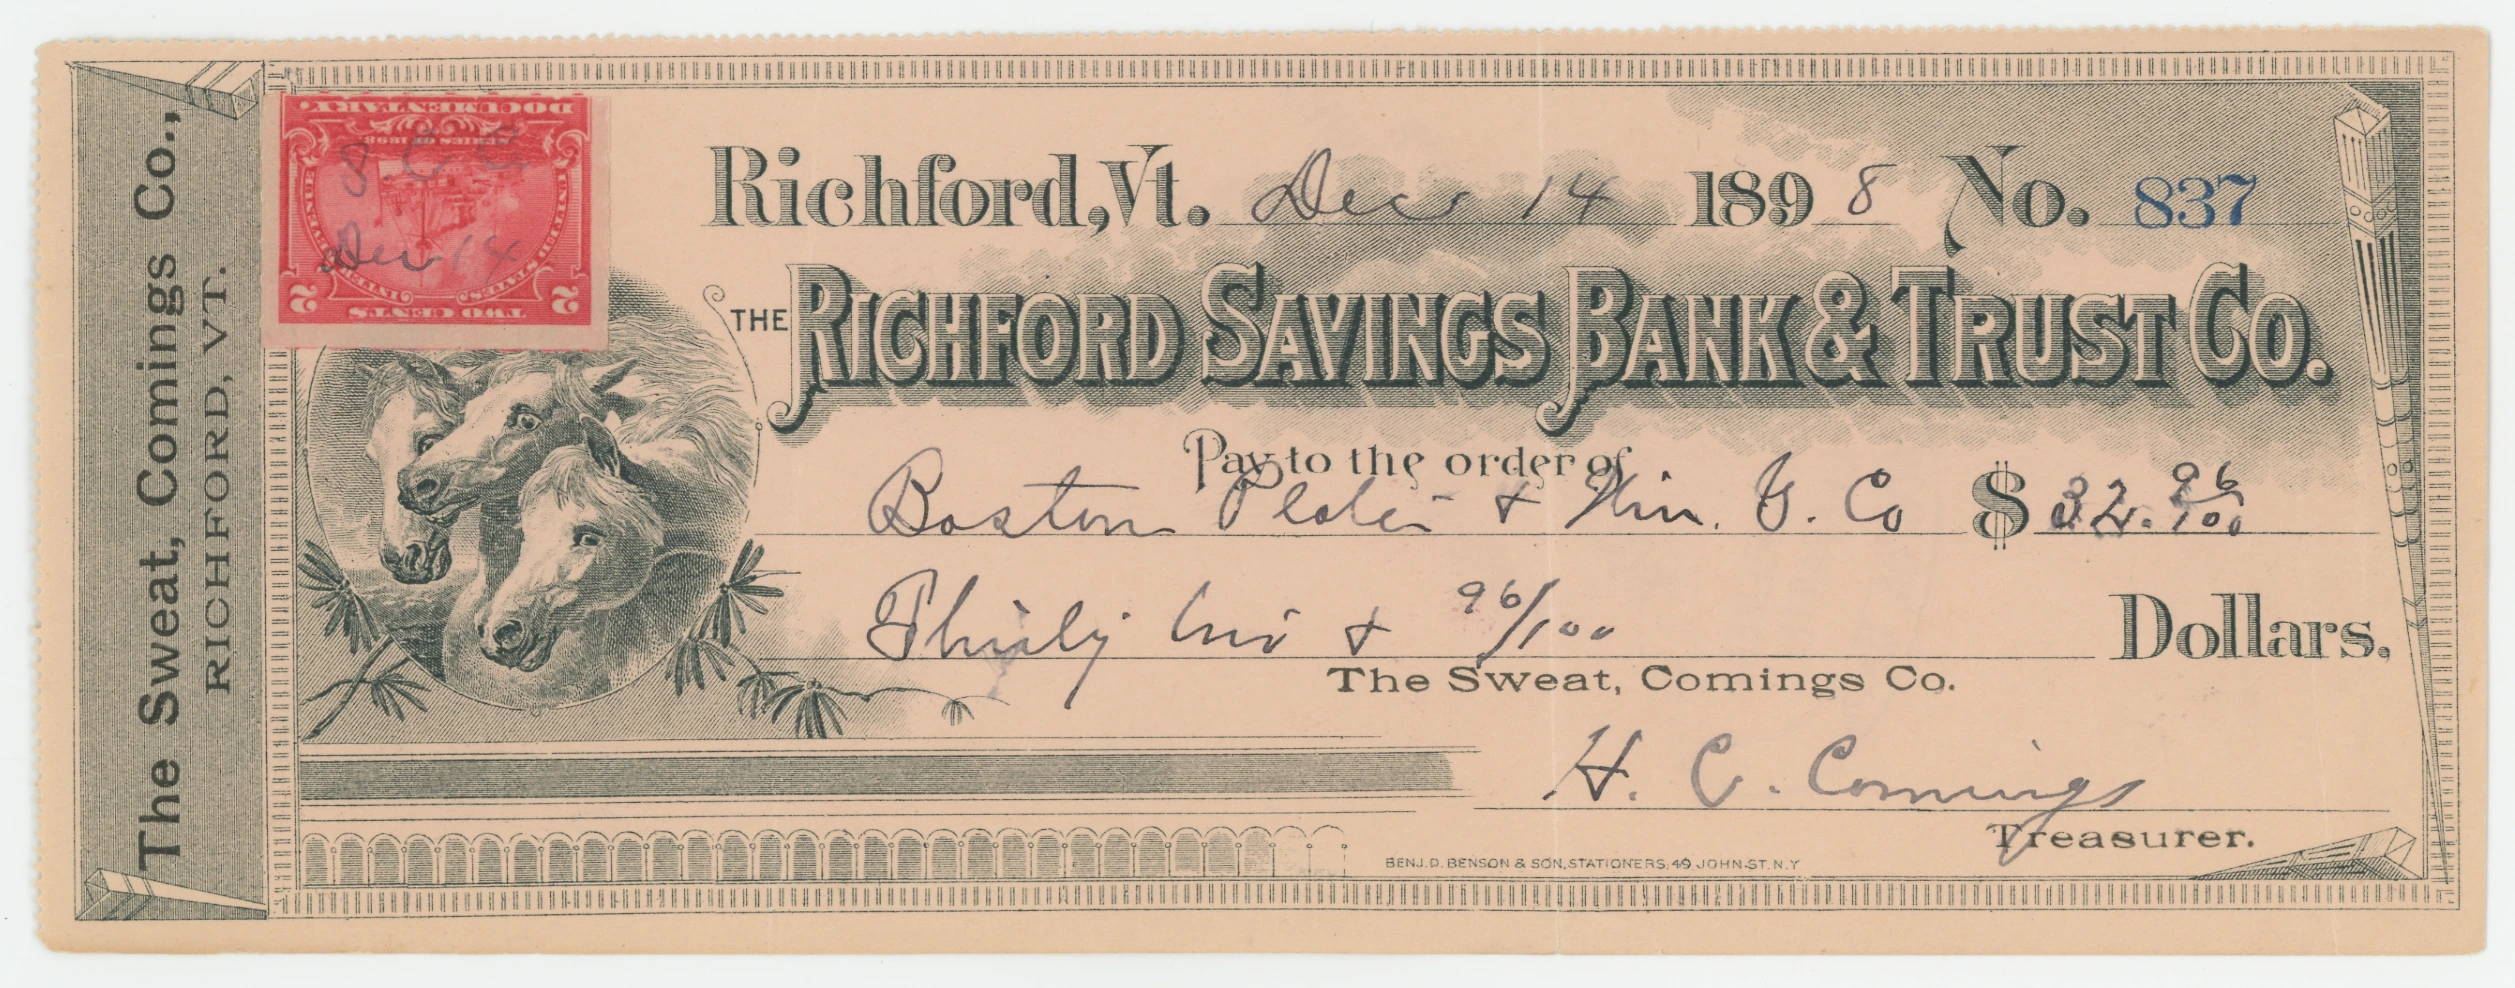 The Sweat, Comings Co.,
RICHFORD, VT.
DOCUMENTARY.
SERIES OF 1898.
UNITED STATES INTERNAL
2 TWO CENTS 2
S C C
Dec 14
Richford, Vt. Dec 14 1898 No. 837
THE RICHFORD SAVINGS BANK & TRUST CO.
Pay to the order of
Boston Plate & Win. G. Co $ 32. 96/100
Thirty two & 96/100 Dollars.
The Sweat, Comings Co.
H. C. Comings
Treasurer.
BENJ. D. BENSON & SON, STATIONERS, 49 JOHN ST. N.Y